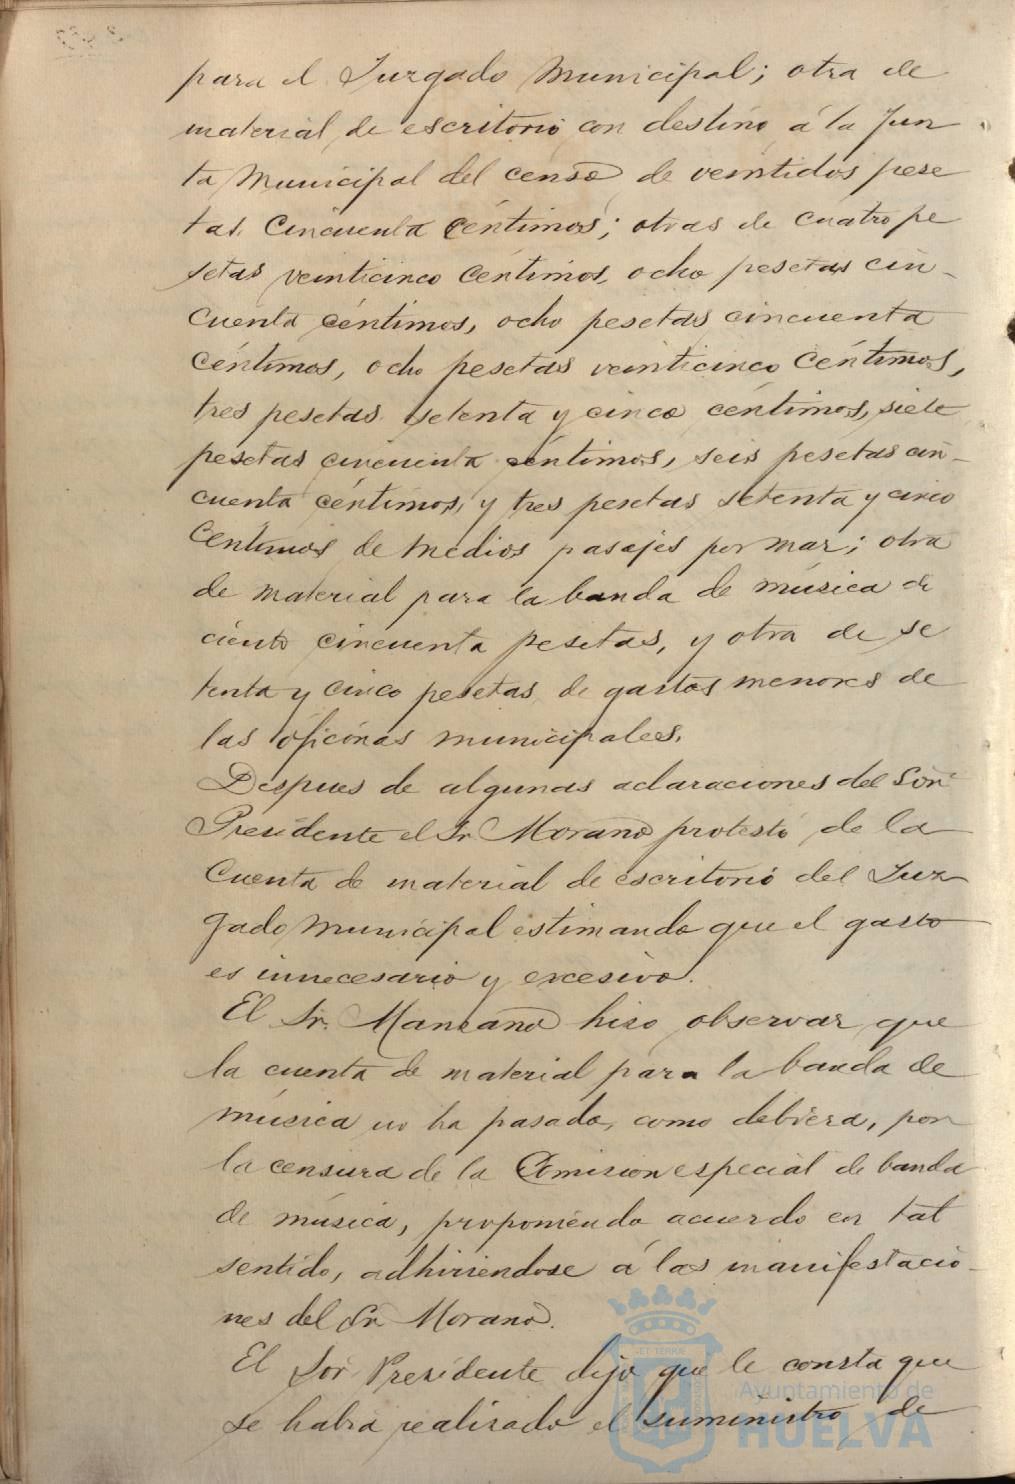 para el Juzgado Municipal; otra de
material de escritorio con destino á la Jun
ta Municipal del censo de veintidos pese
tas cincuenta céntimos; otras de cuatro pe
setas veinticinco céntimos, ocho pesetas cin-
cuenta céntimos, ocho pesetas cincuenta
céntimos, ocho pesetas veinticinco céntimos,
tres pesetas setenta y cinco céntimos, siete
pesetas cincuenta céntimos, seis pesetas cin-
cuenta céntimos, y tres pesetas setenta y cinco
céntimos de medios pasajes por mar; otra
de material para la banda de música de
ciento cincuenta pesetas, y otra de se
tenta y cinco pesetas de gastos menores de
las oficinas municipales.
Despues de algunas aclaraciones del Sor
Presidente el Sr Morano protestó de la
cuenta de material de escritorio del Juz
gado Municipal estimando que el gasto
es innecesario y excesivo.
El Sr. Manzano hizo observar que
la cuenta de material para la banda de
música no ha pasado, como debiera, por
la censura de la Comision especial de banda
de música, proponiendo acuerdo en tal
sentido, adhiriendose á las manifestacio-
nes del Sr Morano.
El Sor Presidente dijo que le consta que
se habia realizado el suministro de
ET TERRÆ
Ayuntamiento de
HUELVA